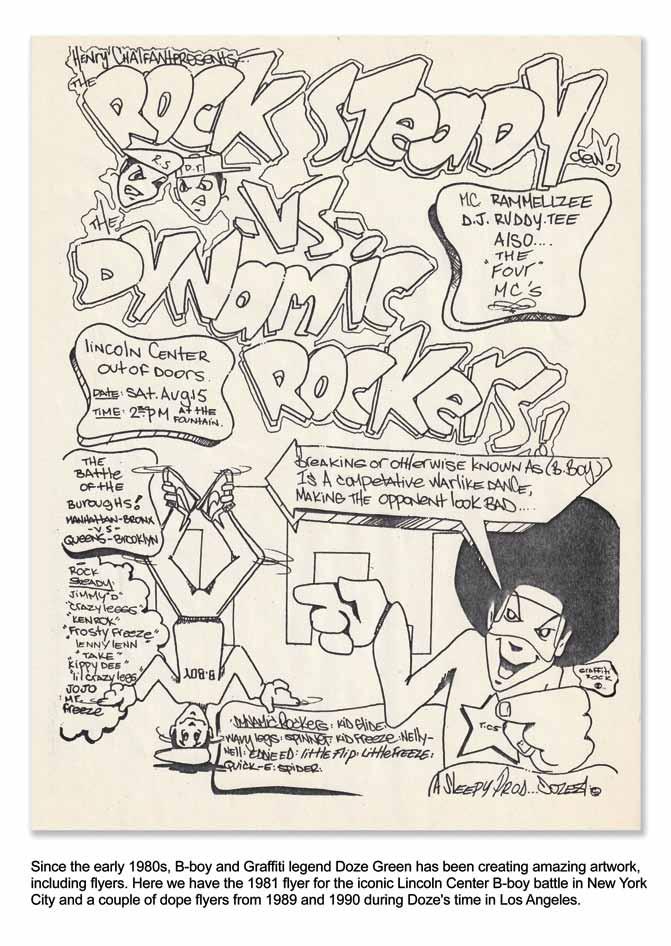 Henry Chalfant presents...
THE
ROCK STEADY
CREW!
R.S
D.T.
-VS-
THE
DYNAMIC
ROCKERS!
MC RAMMELLZEE
D.J. RUDDY.TEE
ALSO....
THE
"FOUR"
MC'S
LINCOLN CENTER
OUT OF DOORS.
DATE: SAT. AUG 15
TIME: 2:00 PM AT THE
FOUNTAIN.
THE
BATTLE
OF THE
BUROUGHS!
MANHATTAN-BRONX
-VS-
QUEENS-BROOKLYN
BREAKING OR OTHERWISE KNOWN AS (B.BOY)
IS A COMPETATIVE WARLIKE DANCE,
MAKING THE OPPONENT LOOK BAD....
ROCK
STEADY
JIMMY "D"
"CRAZY LEGGS"
"KEN ROK"
"FROSTY FREEZE"
LENNY LENN
"TAKE"
KIPPY DEE"
"lil CRAZY LEGS
JOJO
MR.
FREEZE
B-BOY
DYNAMIC ROCKERS: KID GLIDE:
WAVY LEGS: SPINNER: KID FREEZE: NELLY-
NELL: EDDIE ED: LITTLE FLIP: LITTLE FREEZE:
QUICK-E: SPIDER:
GRAFFITI
ROCK
T.C5
A SLEEPY PROD... DOZE
Since the early 1980s, B-boy and Graffiti legend Doze Green has been creating amazing artwork,
including flyers. Here we have the 1981 flyer for the iconic Lincoln Center B-boy battle in New York
City and a couple of dope flyers from 1989 and 1990 during Doze's time in Los Angeles.